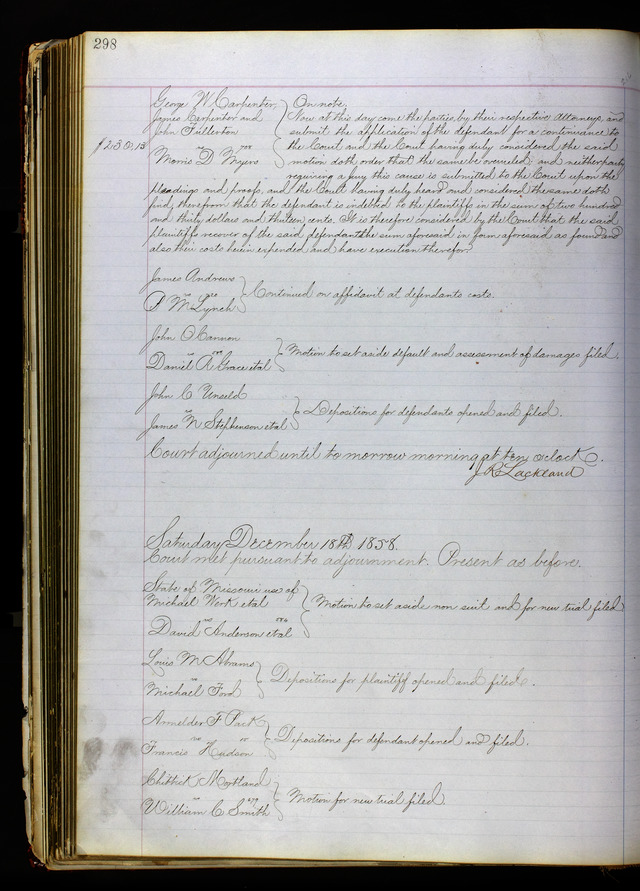 298
George W Carpenter, On note,
James Carpenter and Now at this day come the parties, by their respective Attorneys and
John Fullerton submit the application of the defendant for a continuance to
$230,13 the Court and the Court having duly considered the said
Morris D Myers motion doth order that the same be overruled; and neither party
requiring a jury this cause is submitted to the Court upon the
pleadings and proofs, and the Court having duly heard and considered the same doth
find, therefrom that the defendant is indebted to the plaintiffs in the sum of two hundred
and thirty dollars and thirteen cents. It is therefore considered by the Court that the said
plaintiffs recover of the said defendant the sum aforesaid in form aforesaid as found and
also their costs herein expended and have execution therefor.
James Andrews
vs Continued on affidavit at defendants costs.
P M Lynch
John O Bannon
vs Motion to set aside default and assessment of damages filed.
Daniel A Grace et al
John C Unseld
Depositions for defendants opened and filed.
James N Stephenson et al
Court adjourned until to morrow morning at ten o'clock.
J R Lackland
Saturday December 18th 1858.
Court met pursuant to adjournment. Present as before.
State of Missouri use of
Michael Work et al Motion to set aside non suit and for new trial filed
vs
David Anderson et al
Louis M Abrams
vs Depositions for plaintiff opened and filed.
Michael Ford
F Park
vs Depositions for defendant opened and filed.
Francis Hudson
vs Motion for new trial filed.
William C Smith